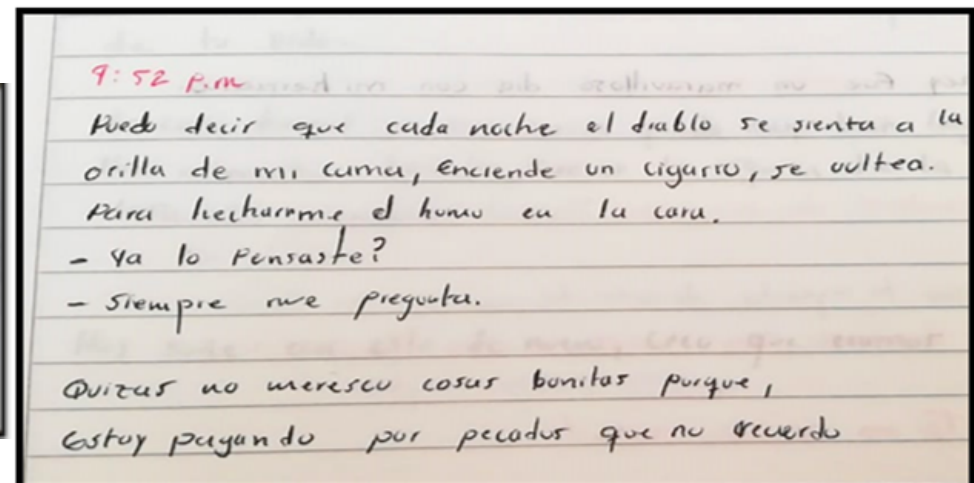 9:52 P.m
Puedo decir que cada noche el diablo se sienta a la
orilla de mi cama, Enciende un cigarro, se voltea.
Para hecharme el humo en la cara.
- Ya lo Pensaste?
- Siempre me pregunta.
Quizas no meresco cosas bonitas porque,
Estoy pagando por pecados que no recuerdo